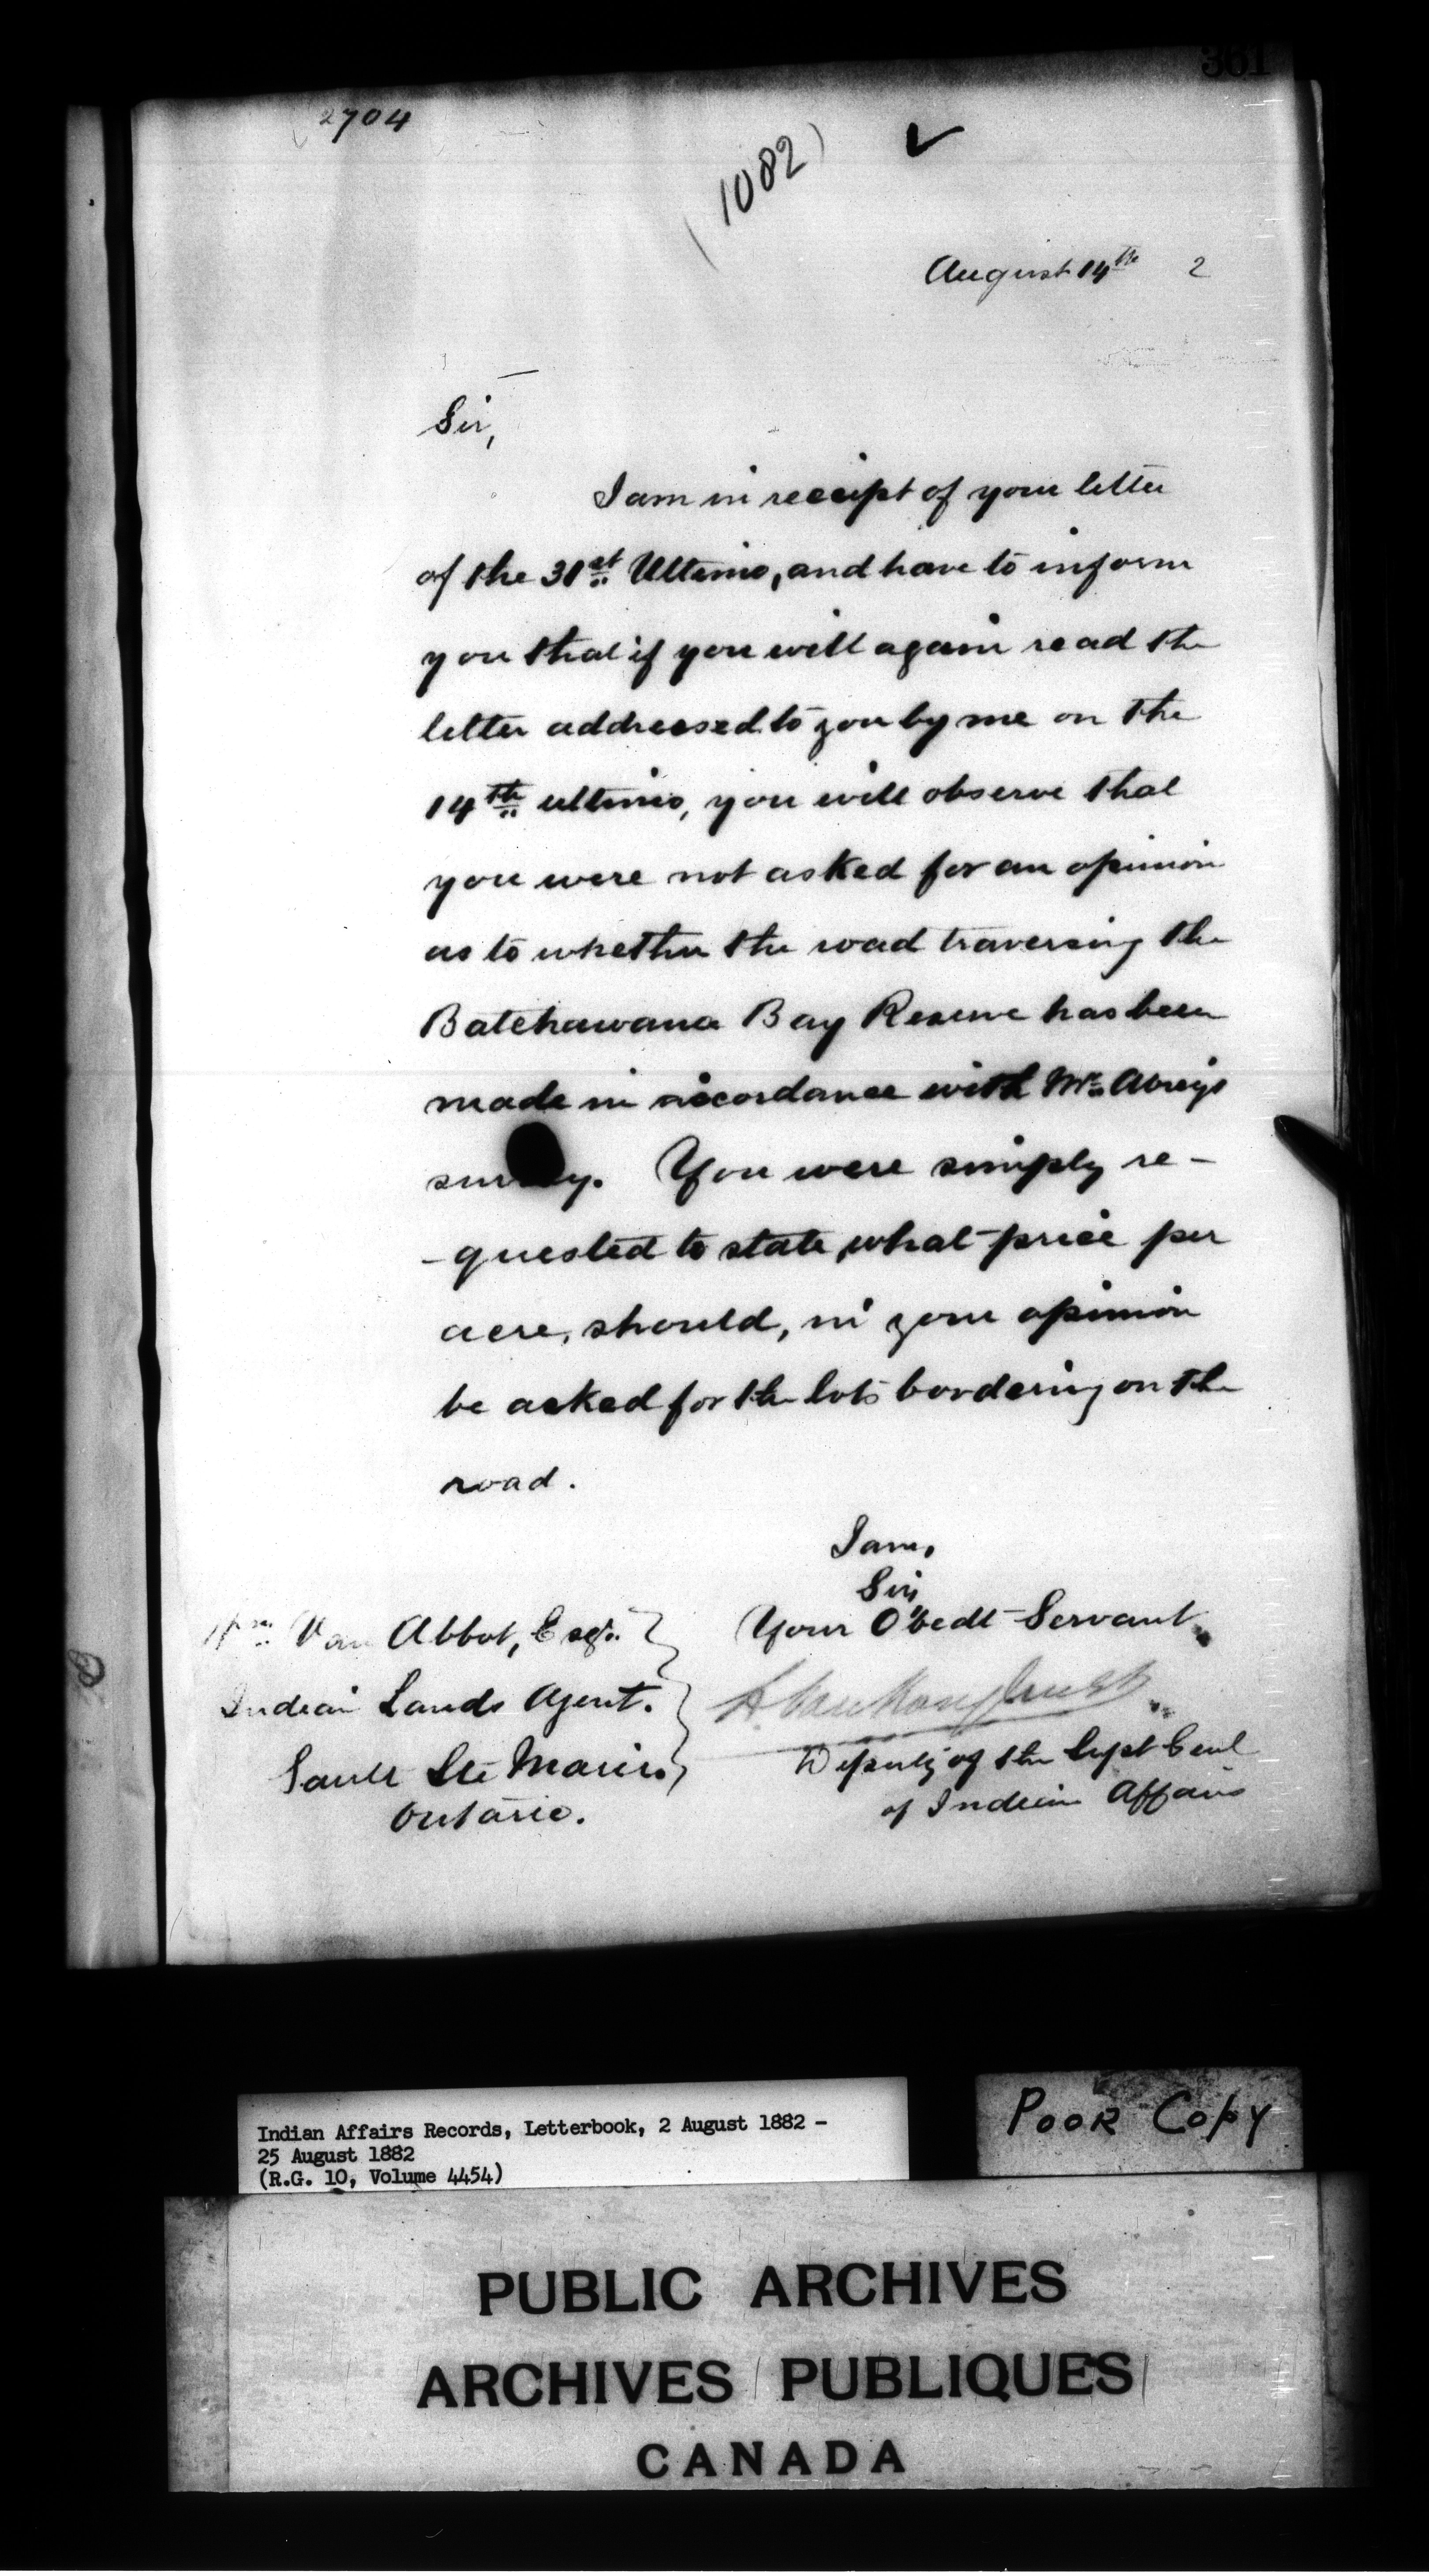 361
2704
(1082)
August 14th 2
Sir,
I am in receipt of your letter
of the 31st Ultimo, and have to inform
you that if you will again read the
letter addressed to you by me on the
14th ultimo, you will observe that
you were not asked for an opinion
as to whether the road traversing the
Batchawana Bay Reserve has been
made in accordance with Mr.
survey. You were simply re-
-quested to state, what price per
acre, should, in your opinion
be asked for the lots bordering on the
road.
I am,
Sir,
Your Obedt Servant
Wm Van Abbot, Esqr.
L. Vankoughnet
Indian Lands Agent.
Deputy of the Supt Genl
Sault Ste Marie,
of Indian Affairs
Ontario.
Indian Affairs Records, Letterbook, 2 August 1882 -
25 August 1882
(R.G. 10, Volume 4454)
POOR COPY
PUBLIC ARCHIVES
ARCHIVES PUBLIQUES
CANADA